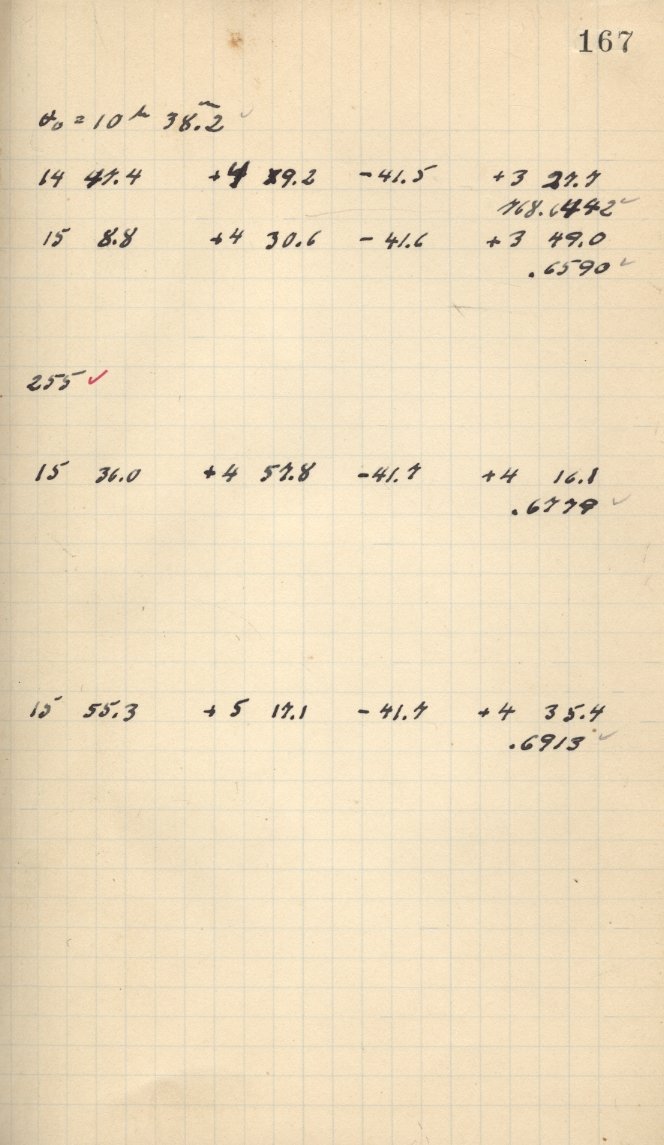 167
θ₀ = 10ʰ 38.2ᵐ ✓
14 47.4 +4 9.2 -41.5 +3 27.7
768.6442 ✓
15 8.8 +4 30.6 -41.6 +3 49.0
.6590 ✓
255 ✓
15 36.0 +4 57.8 -41.7 +4 16.1
.6779 ✓
15 55.3 +5 17.1 -41.7 +4 35.4
.6913 ✓